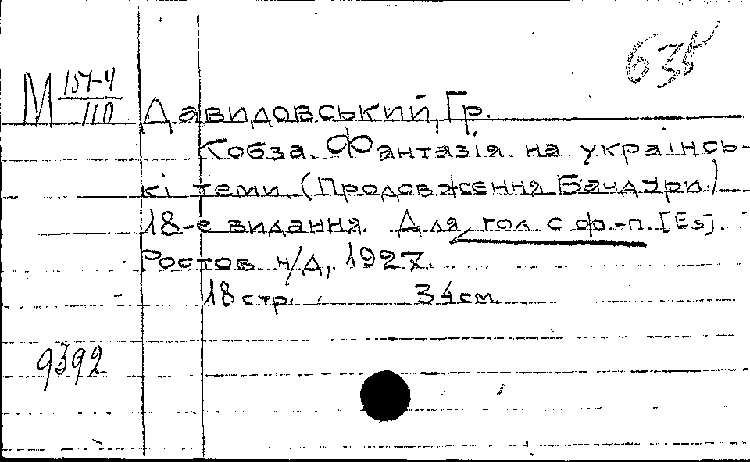 635
М 157-4/110
Давидовський, Гр.
Кобза. Фантазія на українсь-
кі теми (Продовження Бандури)
18-е видання. Для гол с ф.-п. [Es].
Ростов н/Д, 1927.
18 стр. 34 см.
9392